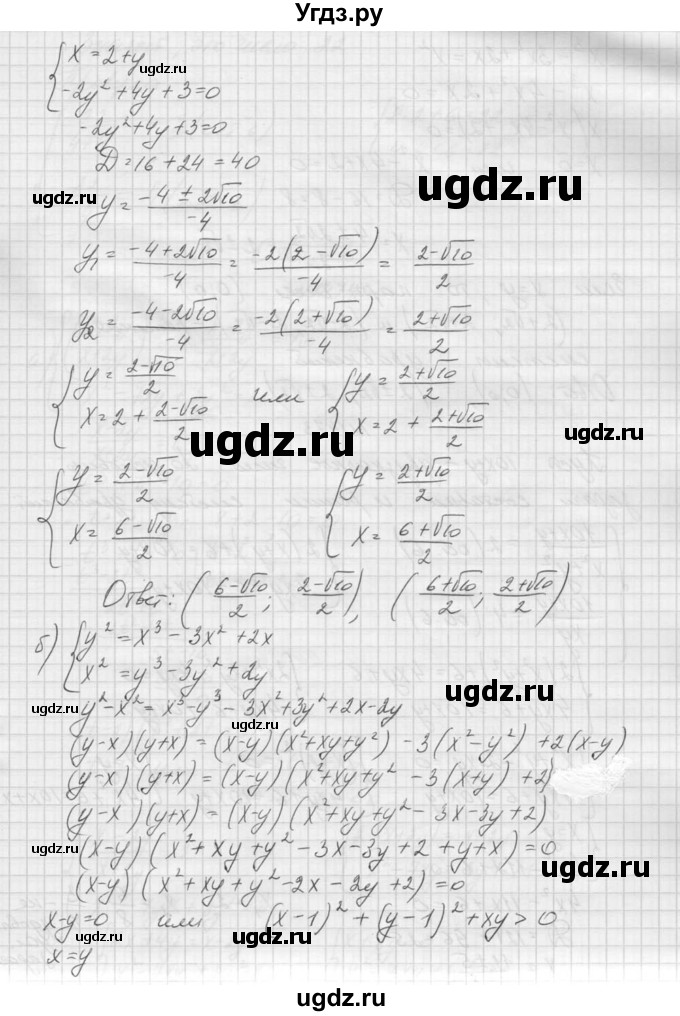 Угдз.ру
{ x = 2 + y
-2y² + 4y + 3 = 0
ugdz.ru
-2y² + 4y + 3 = 0
D = 16 + 24 = 40
ugdz.ru
ugdz.ru
y = (-4 ± 2√10)/(-4)
y₁ = (-4 + 2√10)/(-4) = (-2(2 - √10))/(-4) = (2 - √10)/2
ugdz.ru
y₂ = (-4 - 2√10)/(-4) = (-2(2 + √10))/(-4) = (2 + √10)/2
{ y = (2 - √10)/2 или { y = (2 + √10)/2
x = 2 + (2 - √10)/2 x = 2 + (2 + √10)/2
ugdz.ru
ugdz.ru
{ y = (2 - √10)/2 { y = (2 + √10)/2
x = (6 - √10)/2 x = (6 + √10)/2
ugdz.ru
Ответ: ((6 - √10)/2; (2 - √10)/2), ((6 + √10)/2; (2 + √10)/2)
б) { y² = x³ - 3x² + 2x
x² = y³ - 3y² + 2y
ugdz.ru
ugdz.ru
y² - x² = x³ - y³ - 3x² + 3y² + 2x - 2y
ugdz.ru
(y-x)(y+x) = (x-y)(x² + xy + y²) - 3(x² - y²) + 2(x-y)
(y-x)(y+x) = (x-y)(x² + xy + y² - 3(x+y) + 2)
(y-x)(y+x) = (x-y)(x² + xy + y² - 3x - 3y + 2)
ugdz.ru
(x-y)(x² + xy + y² - 3x - 3y + 2 + y + x) = 0
ugdz.ru
(x-y)(x² + xy + y² - 2x - 2y + 2) = 0
x-y = 0 или (x-1)² + (y-1)² + xy > 0
ugdz.ru
ugdz.ru
x = y
ugdz.ru
ugdz.ru